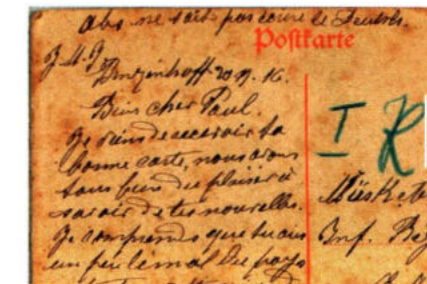 ne sait pas ecrire le
Postkarte
J. M. J.
20.11.16.
Bien cher Paul.
Je viens de recevoir ta
bonne carte, nous avons
tous bien du plaisir à
savoir de tes nouvelles.
Je comprends que tu ais
un peu le mal du pays
I R
Inf.